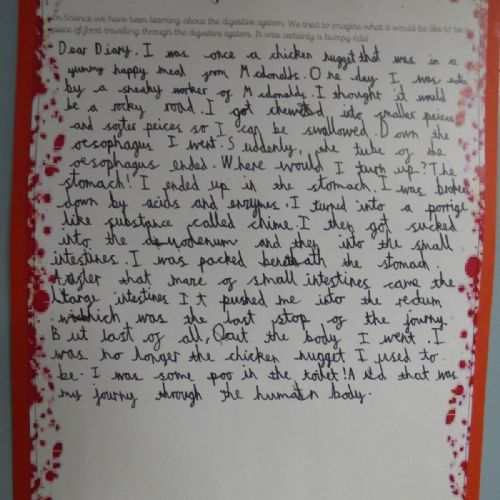 In Science we have been learning about the digestive system. We tried to imagine what it would be like to be a
piece of food travelling through the digestive system. It was certainly a bumpy ride!
Dear Diary. I was once a chicken nugget that was in a
yummy happy meal from Mcdonalds. One day I was eaten
by a sneaky worker of Mcdonalds. I thought it would
be a rocky road. I got chewed into smaller peices
and softer peices so I can be swallowed. Down the
oesophagus I went. Suddenly, the tube of the
oesophagus ended. Where would I turn up? The
stomach! I ended up in the stomach. I was broken
down by acids and enzymes. I turned into a porige
like substance called chime. I then got sucked
into the duodenum and then into the small
intestines. I was packed beneath the stomach.
After that mare of small intestines came the
large intestines It pushed me into the rectum
which was the last stop of the journy.
But last of all, Out the body I went. I
was no longer the chicken nugget I used to
be. I was some poo in the toilet! And that was
my journy through the human body.